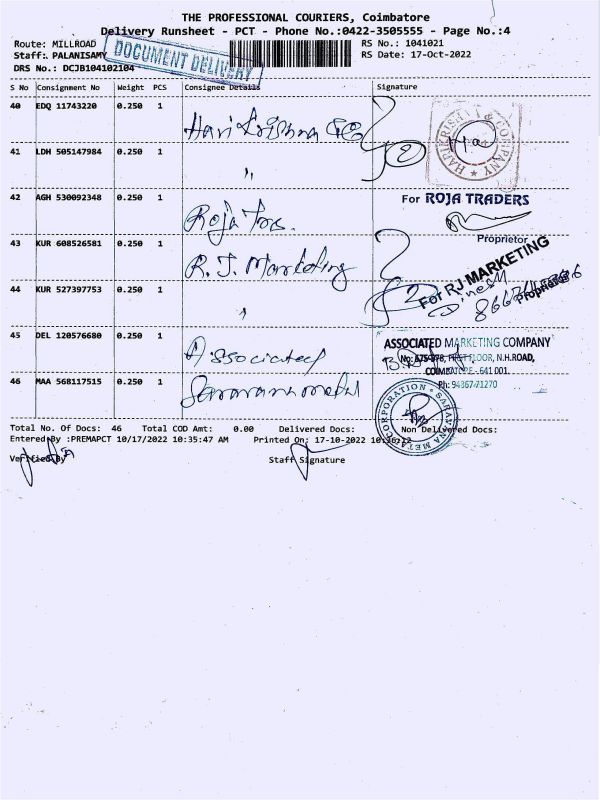 THE PROFESSIONAL COURIERS, Coimbatore
Delivery Runsheet - PCT - Phone No.:0422-3505555 - Page No.:4
Route: MILLROAD
RS No.: 1041021
Staff: PALANISAMY
RS Date: 17-Oct-2022
DOCUMENT DELIVERY
DRS No.: DCJB104102104
S No Consignment No Weight PCS Consignee Details Signature
40 EDQ 11743220 0.250 1
Hari Krishna &Co
HARIKRISHNA & COMPANY
41 LDH 505147984 0.250 1
"
42 AGH 530092348 0.250 1
Roja Trs.
For ROJA TRADERS
Proprietor
43 KUR 608526581 0.250 1
R. J. Marketing
For RJ MARKETING
Proprietor
44 KUR 527397753 0.250 1
"
Dinesh
45 DEL 120576680 0.250 1
Associated
ASSOCIATED MARKETING COMPANY
FIRST FLOOR, N.H.ROAD,
COIMBATORE - 641 001.
Ph: 94367 71270
46 MAA 568117515 0.250 1
Saravana metal
SARAVANA METAL CORPORATION
Total No. Of Docs: 46 Total COD Amt: 0.00 Delivered Docs: Non Delivered Docs:
Entered By :PREMAPCT 10/17/2022 10:35:47 AM Printed On: 17-10-2022 10:36:12
Verified By
Staff Signature